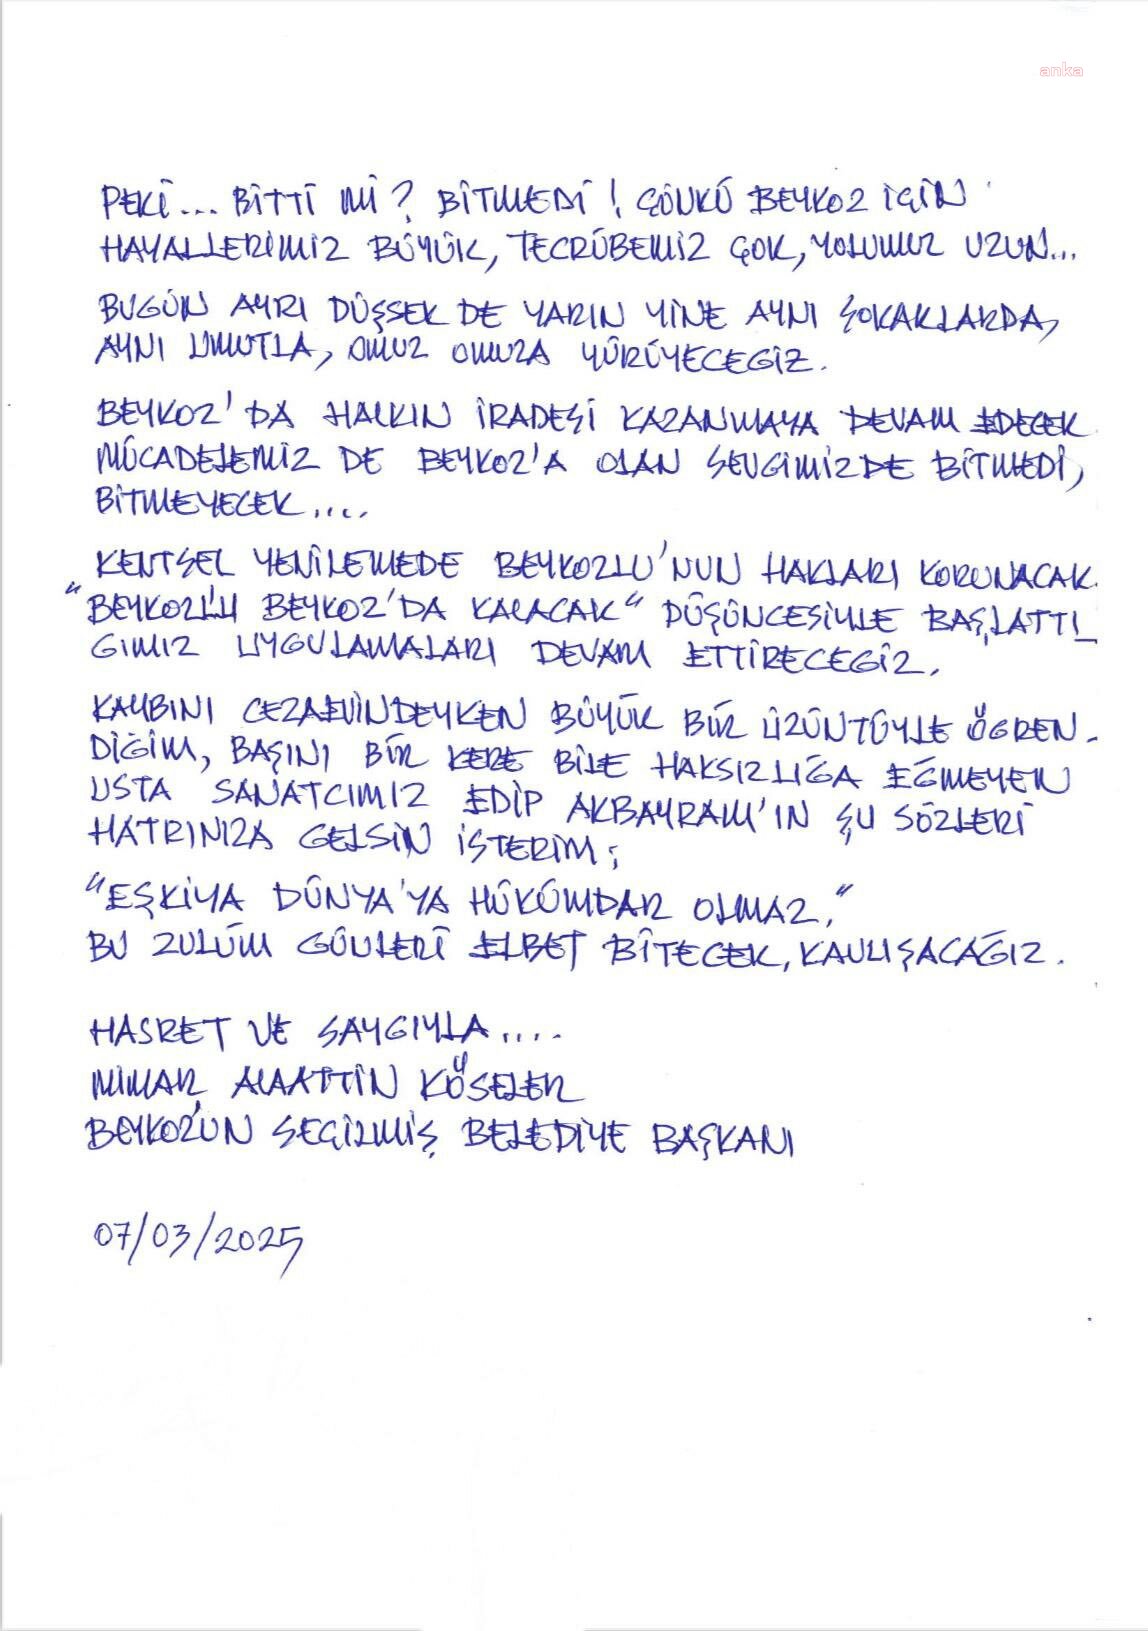 anka
PEKİ... BİTTİ Mİ? BİTMEDİ! ÇÜNKÜ BEYKOZ İÇİN
HAYALLERİMİZ BÜYÜK, TECRÜBEMİZ ÇOK, YOLUMUZ UZUN...
BUGÜN AYRI DÜŞSEK DE YARIN YİNE AYNI SOKAKLARDA,
AYNI UMUTLA, OMUZ OMUZA YÜRÜYECEGİZ.
BEYKOZ'DA HALKIN İRADESİ KAZANMAYA DEVAM EDECEK
MÜCADELEMİZ DE BEYKOZ'A OLAN SEVGİMİZDE BİTMEDİ,
BİTMEYECEK....
KENTSEL YENİLEMEDE BEYKOZLU'NUN HAKLARI KORUNACAK.
"BEYKOZLU BEYKOZ'DA KALACAK" DÜŞÜNCESİYLE BAŞLATTI_
GIMIZ UYGULAMALARI DEVAM ETTİRECEGİZ.
KAYBINI CEZAEVİNDEYKEN BÜYÜK BİR ÜZÜNTÜYLE ÖGREN-
DİĞİM, BAŞINI BİR KERE BİLE HAKSIZLIĞA EĞMEYEN
USTA SANATCIMIZ EDİP AKBAYRAM'IN ŞU SÖZLERİ
HATRINIZA GELSİN İSTERİM;
"EŞKİYA DÜNYA'YA HÜKÜMDAR OLMAZ."
BU ZULÜM GÜNLERİ ELBET BİTECEK, KAVUŞACAĞIZ.
HASRET VE SAYGIYLA....
MİMAR ALAATTİN KÖSELER
BEYKOZ'UN SEÇİLMİŞ BELEDİYE BAŞKANI
07/03/2025